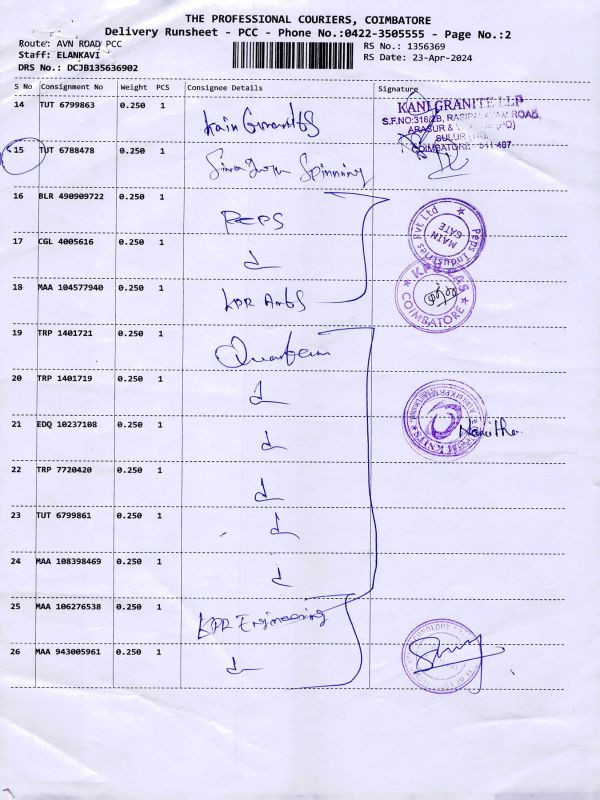 THE PROFESSIONAL COURIERS, COIMBATORE
Delivery Runsheet - PCC - Phone No.:0422-3505555 - Page No.:2
Route: AVN ROAD PCC
RS No.: 1356369
Staff: ELANKAVI
RS Date: 23-Apr-2024
DRS No.: DCJB135636902
S No Consignment No Weight PCS Consignee Details Signature
14 TUT 6799863 0.250 1
KANI GRANITE LLP
S.F.NO:316/2B,
ROAD,
ARASUR &
SULUR
COIMBATORE - 641 407
15 TUT 6788478 0.250 1 Spinning
16 BLR 490909722 0.250 1 PEPS
Peps Industries Pvt Ltd
MAIN GATE
17 CGL 4005616 0.250 1
18 MAA 104577940 0.250 1 KPR Arts
COIMBATORE
19 TRP 1401721 0.250 1 Quantum
20 TRP 1401719 0.250 1
21 EDQ 10237108 0.250 1
22 TRP 7720420 0.250 1
23 TUT 6799861 0.250 1
24 MAA 108398469 0.250 1
25 MAA 106276538 0.250 1 KPR Engineering
26 MAA 943005961 0.250 1